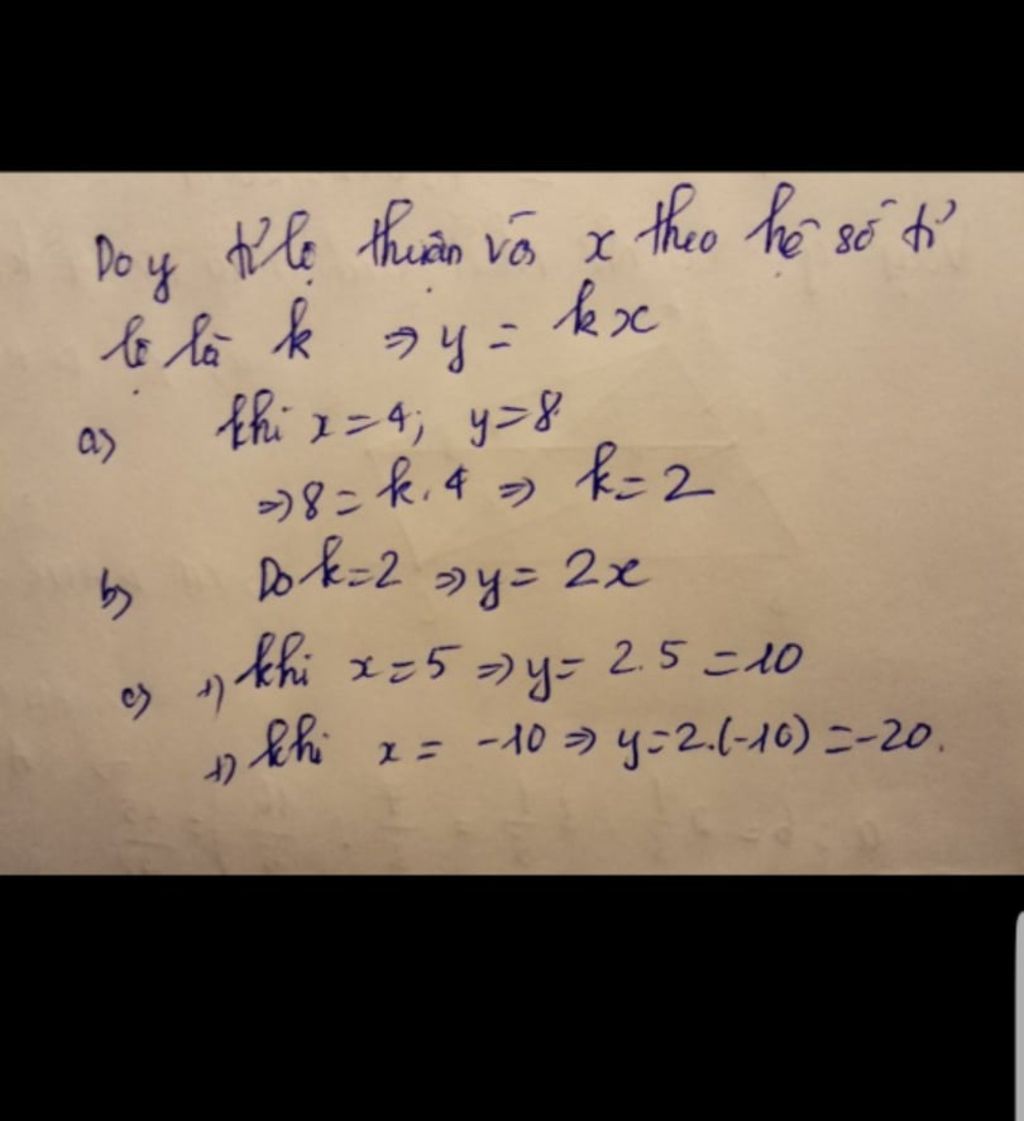 Do y tỉ lệ thuận với x theo hệ số tỉ
lệ là k ⇒ y = kx
a) khi x = 4; y = 8
⇒ 8 = k.4 ⇒ k = 2
b) Do k = 2 ⇒ y = 2x
c) +) khi x = 5 ⇒ y = 2.5 = 10
+) khi x = -10 ⇒ y = 2.(-10) = -20.